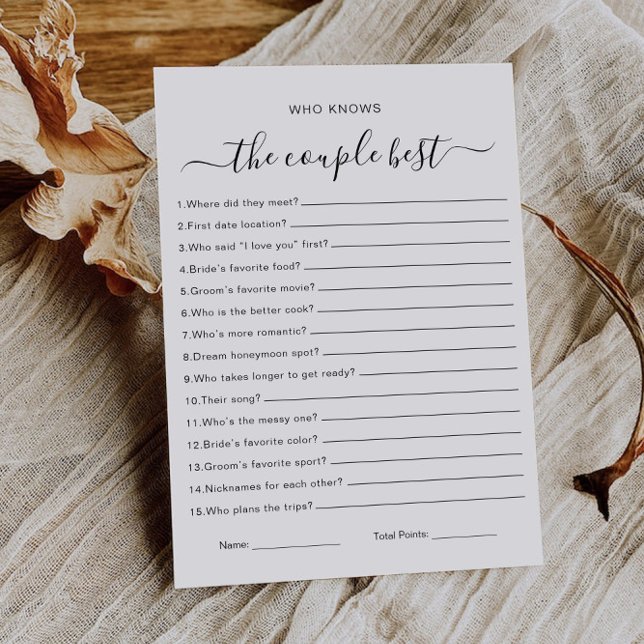 WHO KNOWS
the couple best
1.Where did they meet?
2.First date location?
3.Who said “I love you” first?
4.Bride’s favorite food?
5.Groom’s favorite movie?
6.Who is the better cook?
7.Who’s more romantic?
8.Dream honeymoon spot?
9.Who takes longer to get ready?
10.Their song?
11.Who’s the messy one?
12.Bride’s favorite color?
13.Groom’s favorite sport?
14.Nicknames for each other?
15.Who plans the trips?
Name: Total Points: